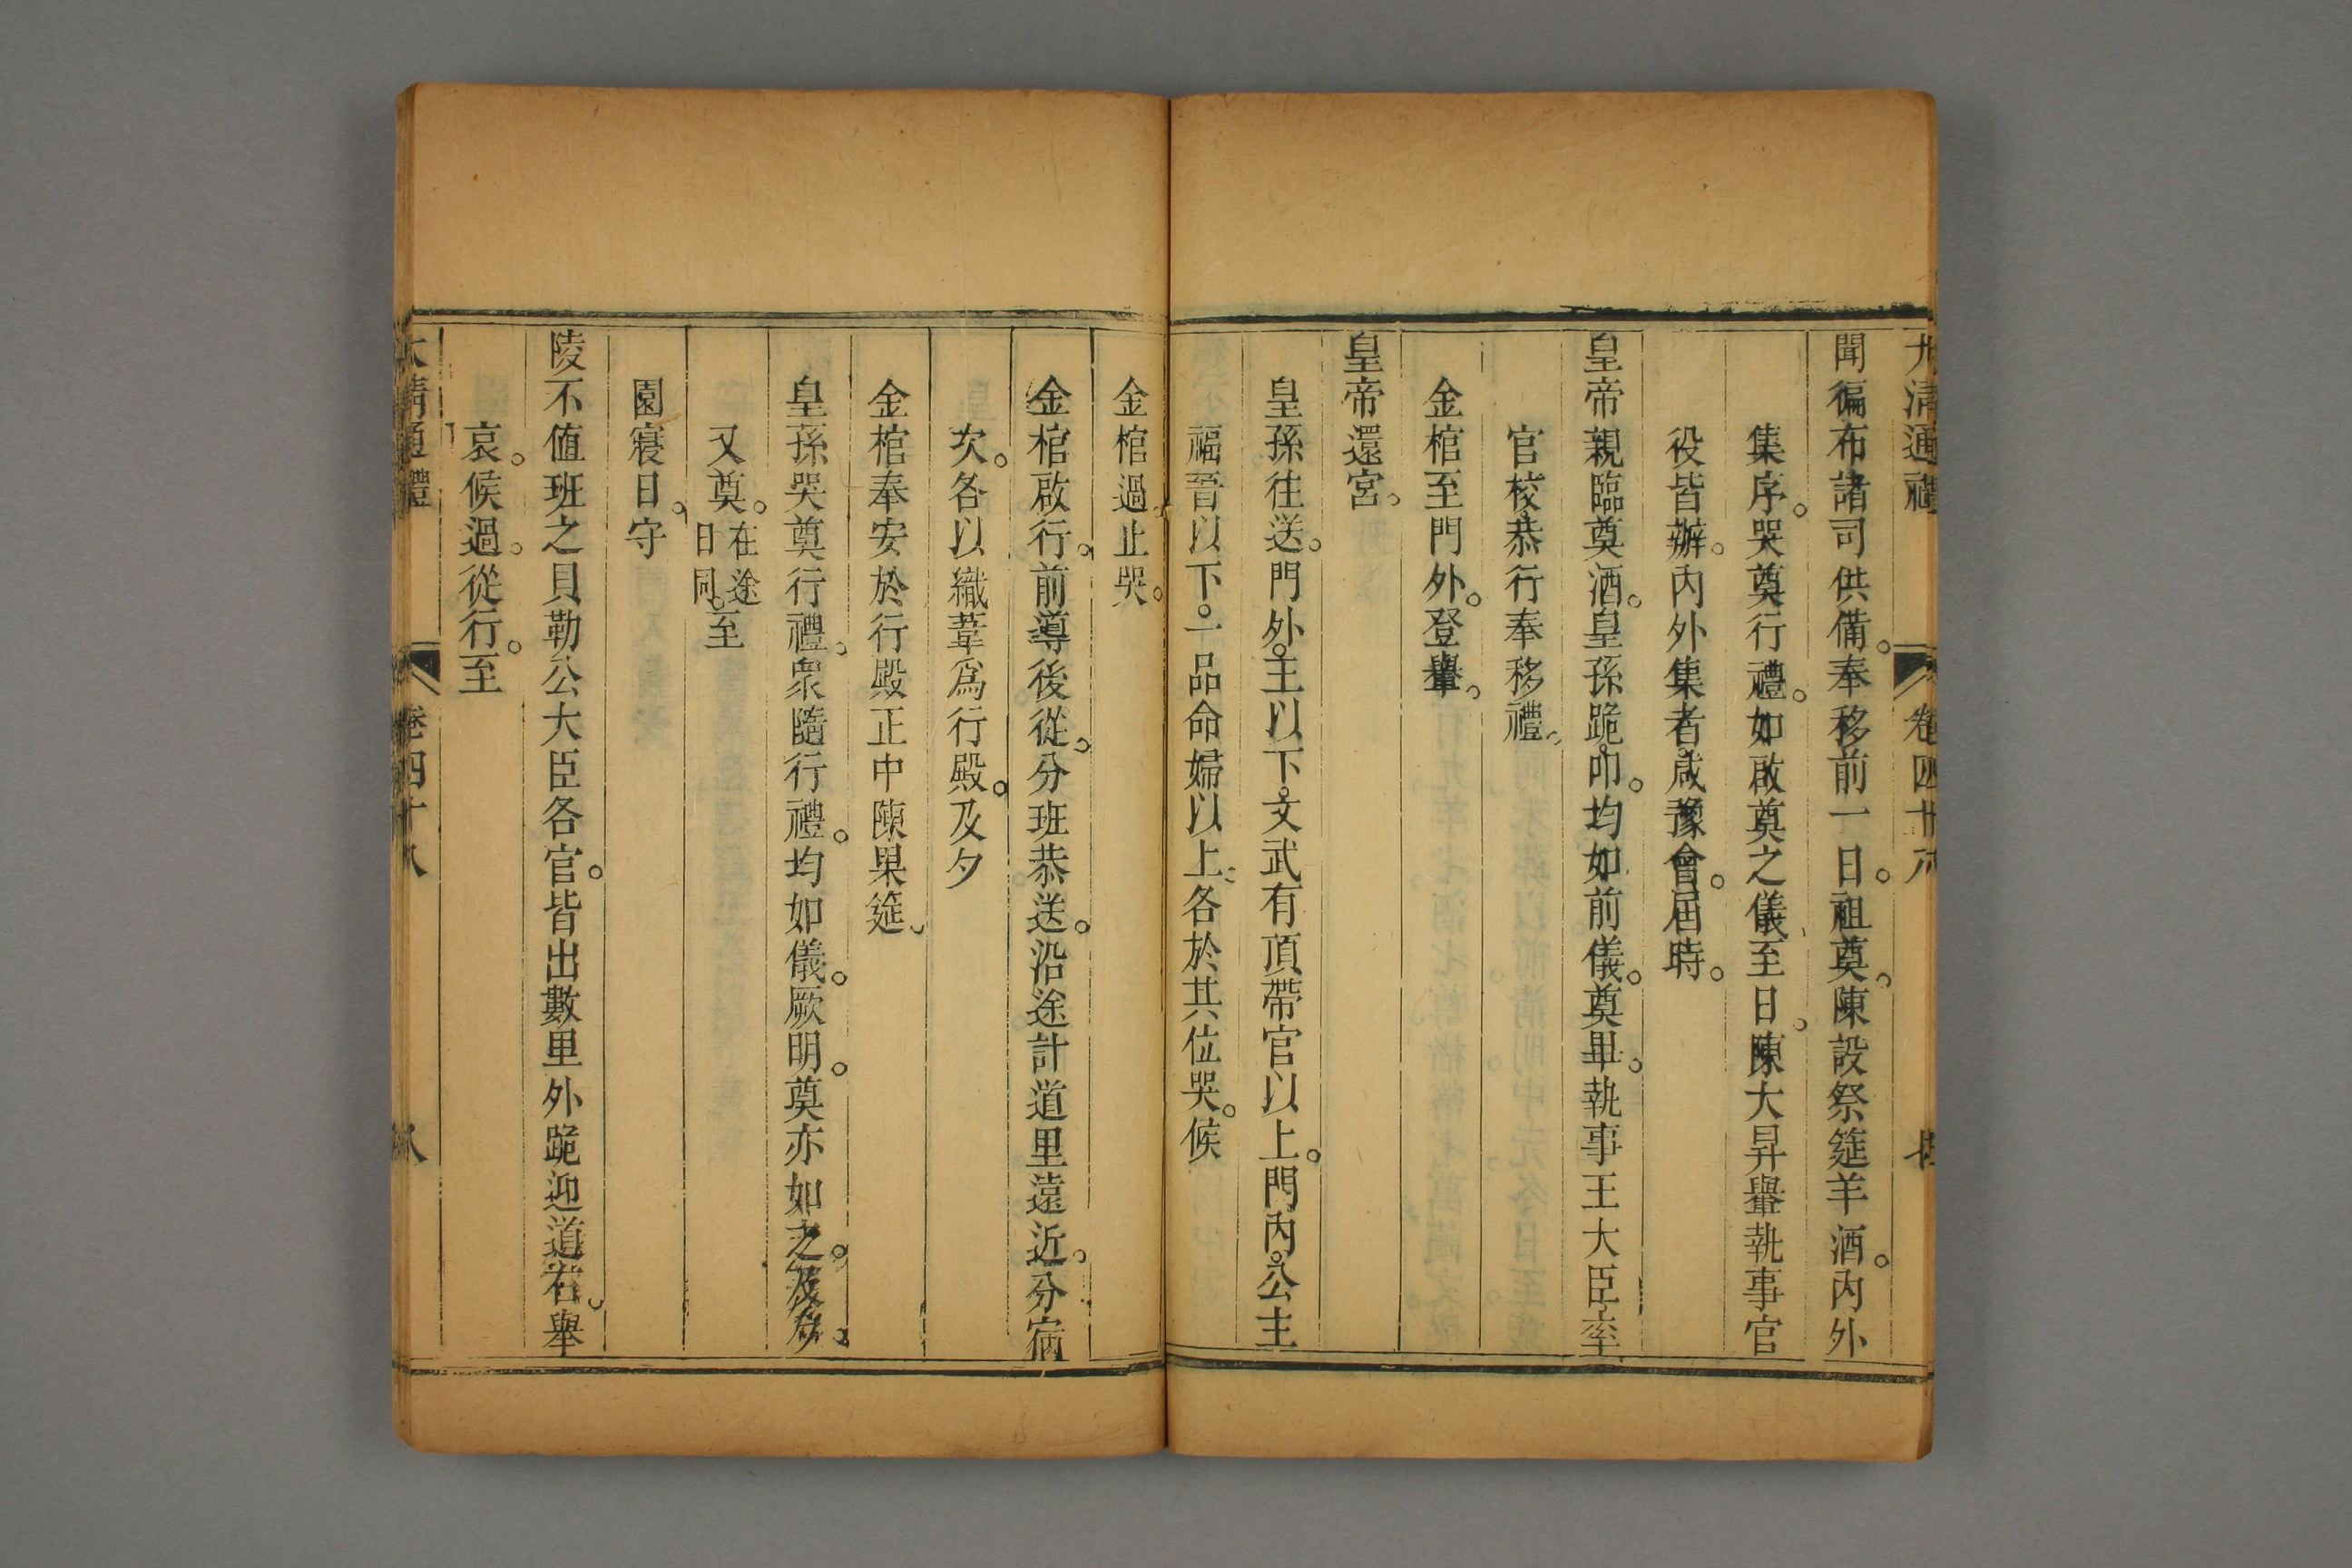 大清通禮 卷四十八
聞徧布諸司供備。奉移前一日。祖奠。陳設祭筵羊酒。內外
集序。哭奠行禮。如啟奠之儀。至日。陳大昇轝執事官
役皆辦。內外集者。咸豫會。屆時。
皇帝親臨奠酒。皇孫跪。叩。均如前儀。奠畢。執事王大臣率
官校。恭行奉移禮。
金棺至門外。登轝。
皇帝還宮。
皇孫往送。門外。王以下。文武有頂帶官以上。門內。公主
福晉以下。一品命婦以上。各於其位哭。候
金棺過。止哭。
金棺啟行。前導後從。分班恭送。沿途計道里遠近。分宿
次。各以織葦為行殿。及夕
金棺奉安於行殿正中陳果筵。
皇孫哭奠行禮。眾隨行禮。均如儀。厥明。奠亦如之。及夕。
又奠。在途日同。至
園寢日。守
陵不值班之貝勒公大臣各官。皆出數里外跪迎道右。舉
哀。候過。從行。至
大清通禮 卷四十八 八